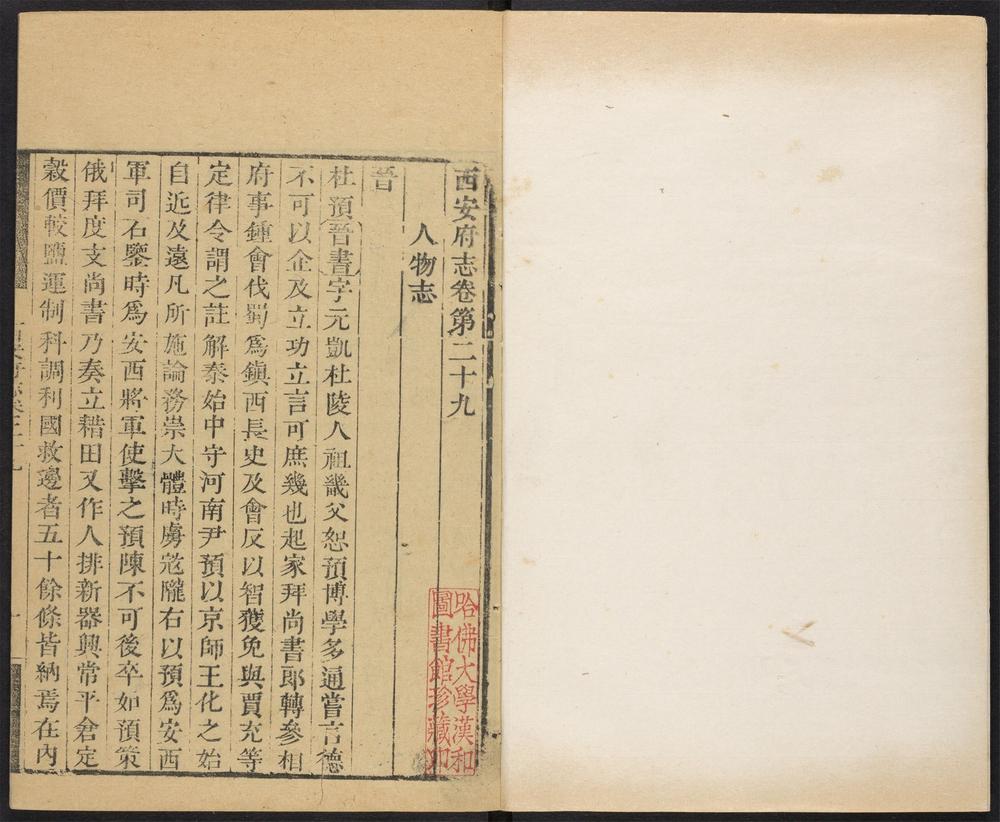 西安府志卷第二十九
人物志
晉
杜預晉書字元凱杜陵人祖畿父恕預博學多通嘗言德
不可以企及立功立言可庶幾也起家拜尚書郎轉參相
府事鍾會伐蜀爲鎭西長史及會反以智獲免與賈充等
定律令謂之註解泰始中守河南尹預以京師王化之始
自近及遠凡所施論務崇大體時虜寇隴右以預爲安西
軍司石鑒時爲安西將軍使擊之預陳不可後卒如預策
俄拜度支尚書乃奏立耤田又作人排新器興常平倉定
穀價較鹽運制科調利國救邊者五十餘條皆納焉在內
哈佛大學漢和
圖書館珍藏印